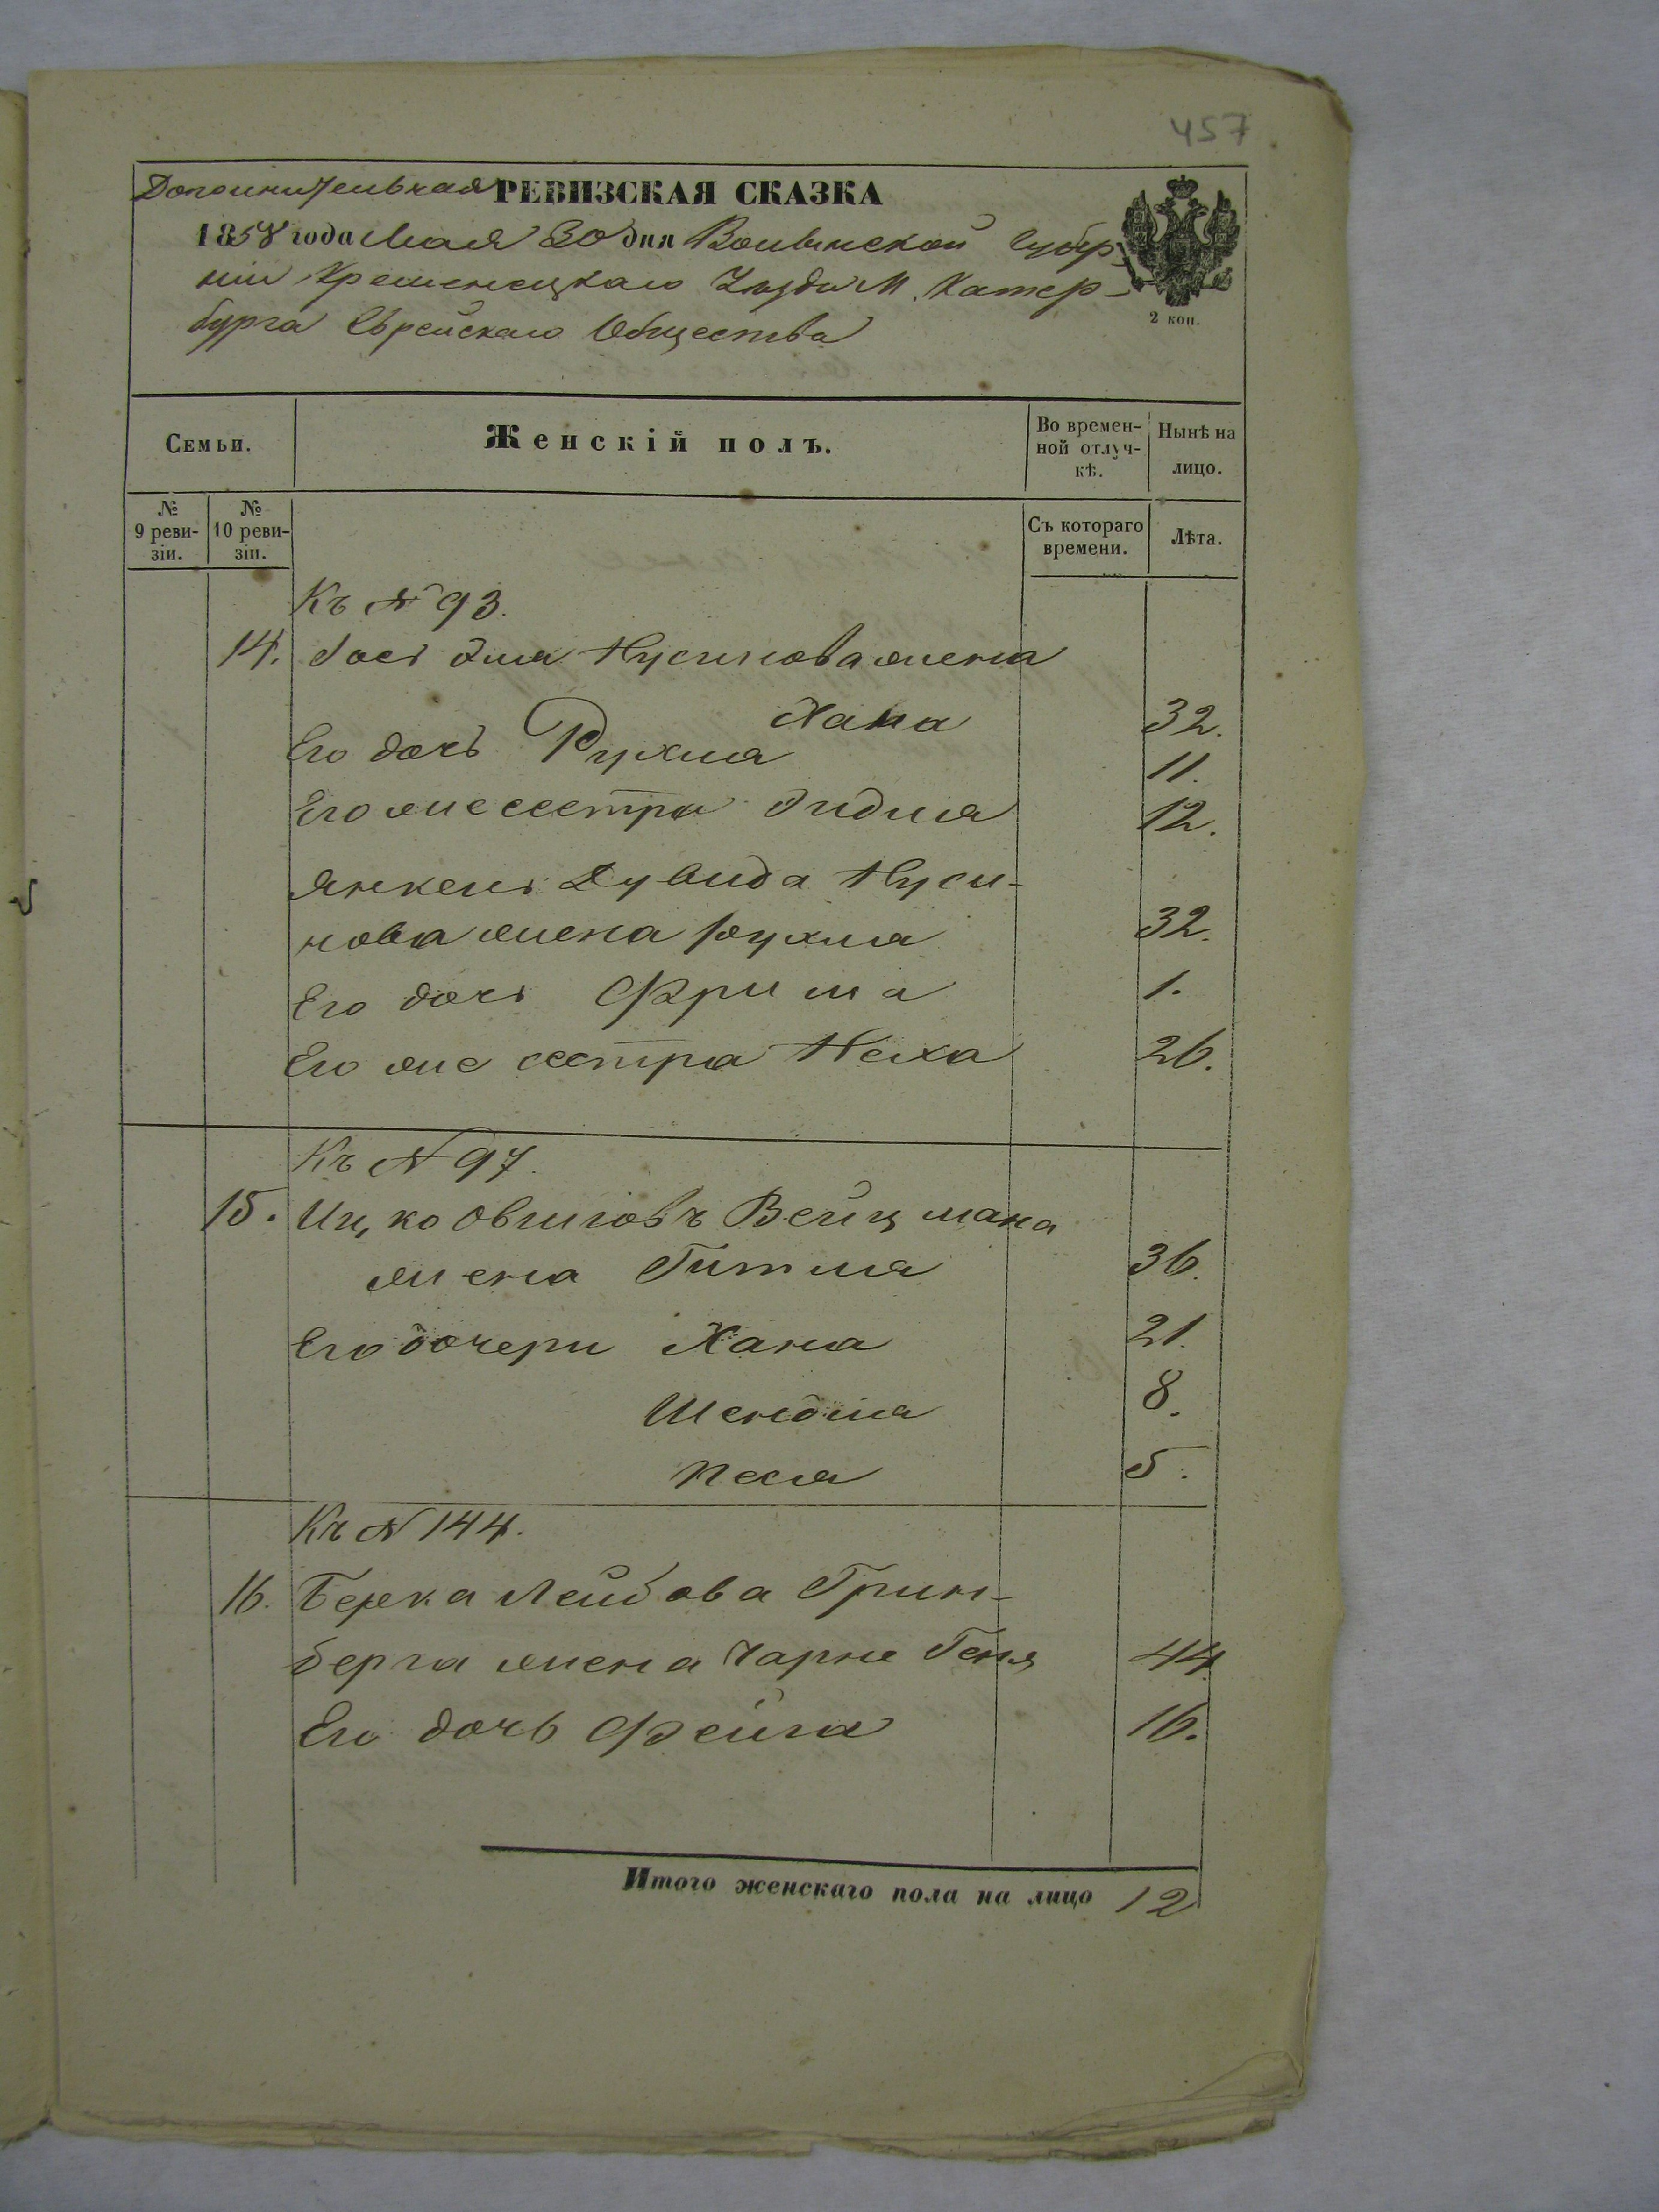 457
Дополнительная РЕВИЗСКАЯ СКАЗКА
1858 года Мая 30 дня Волынской Губер-
нии Кременецкаго Уезда М. Катер-
бурга Еврейскаго Общества
2 коп.
Семьи.
Женскій полъ.
Во времен-
ной отлуч-
кѣ.
Нынѣ на
лицо.
№
9 реви-
зіи.
№
10 реви-
зіи.
Съ котораго
времени.
Лѣта.
Къ № 93.
14. Нусинова жена
Хана 32.
Его дочь Рухля 11.
Его же сестра 12.
Янкель Дувида Нуси-
нова жена Рухля 32.
Его дочь Фрима 1.
Его же сестра Неха 26.
Къ № 97.
15. Иц,ко Вейцмана
жена Гитля 36.
Его дочери Хана 21.
Шендля 8.
Песя 5.
Къ № 144.
16. Берка Лейбова Грин-
берга жена Чарне Геня 44
Его дочь Фейга 16.
Итого женскаго пола на лицо 12